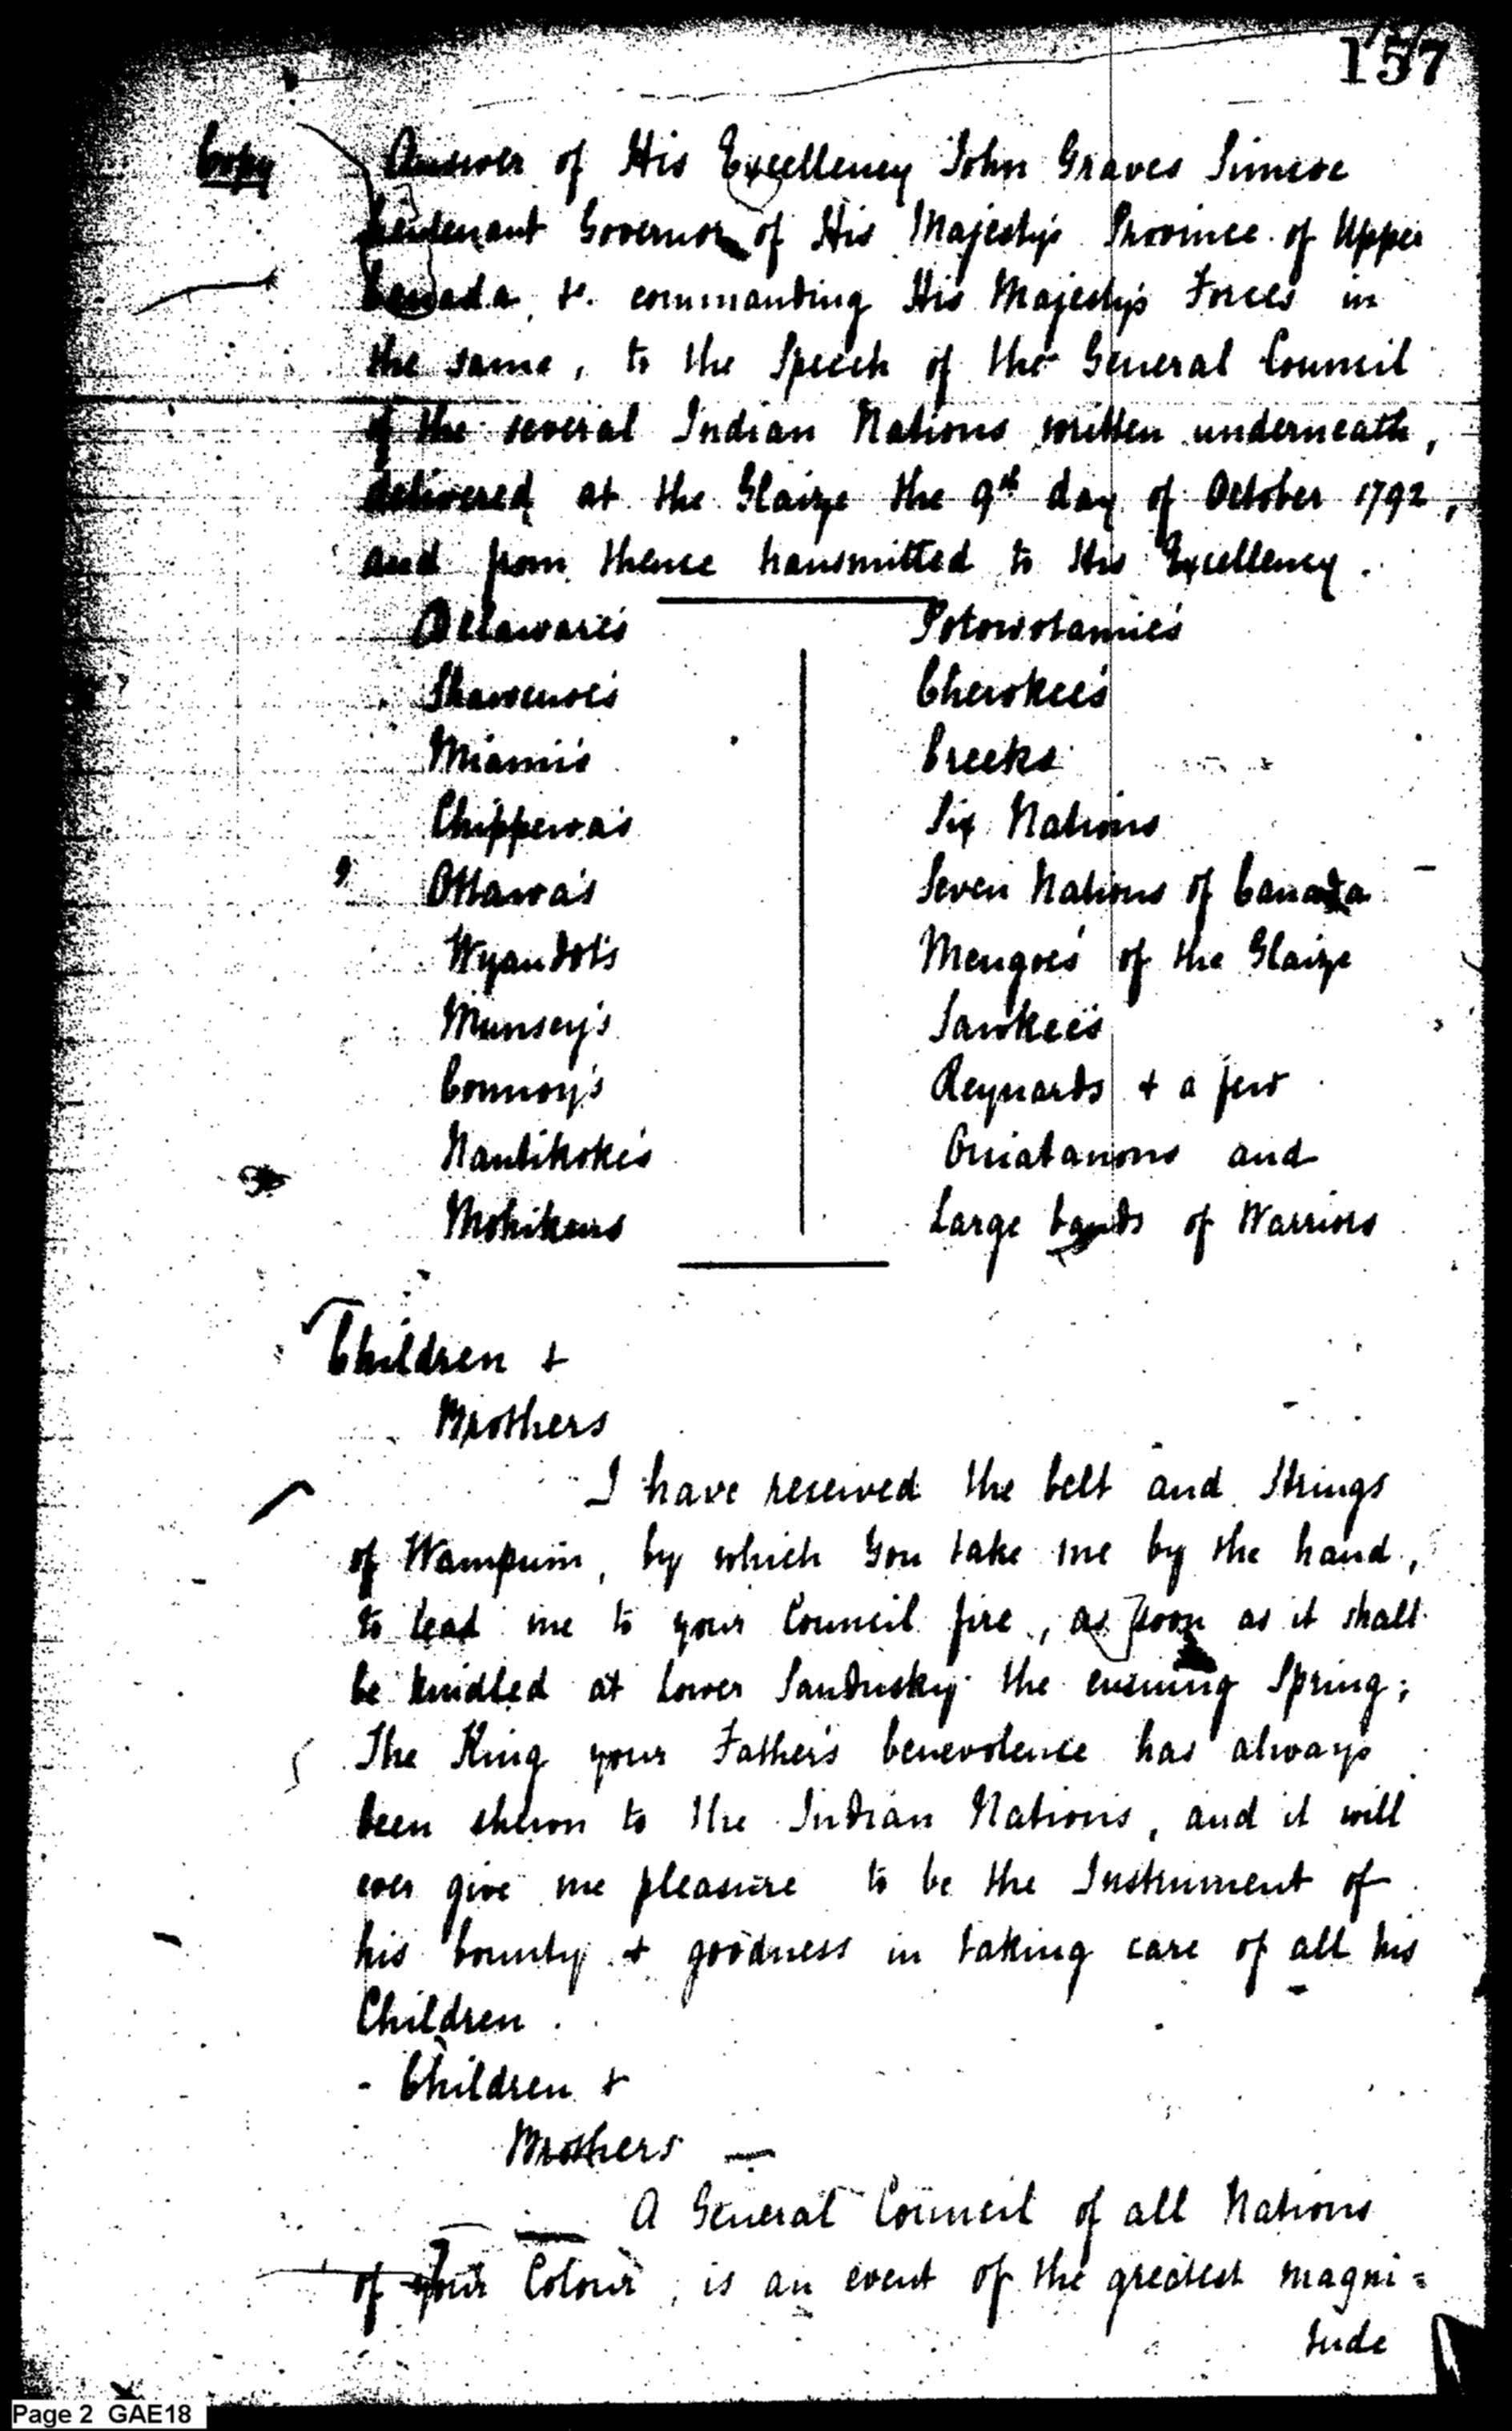 157
Copy
Answer of His Excellency John Graves Simcoe
Lieutenant Governor of His Majesty's Province of Upper
Canada, &c. commanding His Majesty's Forces in
the same, to the Speech of the General Council
of the several Indian Nations written underneath,
delivered at the Glaize the 9th day of October 1792,
and from thence transmitted to His Excellency.
Delaware's
Shawenoe's
Miami's
Chippewa's
Ottawa's
Wyandot's
Munsey's
Connoy's
Nantikoke's
Mohikans
Potowotamie's
Cherokee's
Creeks
Six Nations
Seven Nations of Canada
Mengoes' of the Glaize
Sawkee's
Reynards & a few
Ouiatanons and
Large bands of Warriors
Children &
Brothers
I have received the belt and Strings
of Wampum, by which You take me by the hand,
to lead me to your Council fire, as soon as it shall
be kindled at Lower Sandusky the ensuing Spring;
The King your Father's benevolence has always
been shewn to the Indian Nations, and it will
ever give me pleasure to be the Instrument of
his bounty & goodness in taking care of all his
Children.
- Children &
Brothers —
A General Council of all Nations
of your Colour, is an event of the greatest magni=
tude
Page 2 GAE18